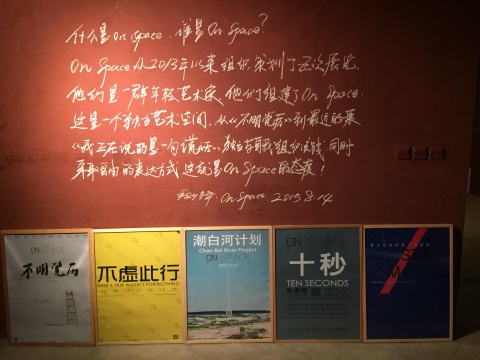 什么是on space. 谁是On Space?
On Space从2013年以来组织.策划了五次展览.
他们是一群年轻艺术家,他们组建了On Space.
这是一个独立艺术空间,从《不明笔历》到最近的展
《我正在说的是一句谎话》,独立自我组织实践,同时
寻求自由的表达方式,这就是On Space的态度!
On Space 2015.8.14
ON SPACE
不明笔历
不虚此行
潮白河计划
Chao-Bai River Project
ON SPACE
十秒
TEN SECONDS